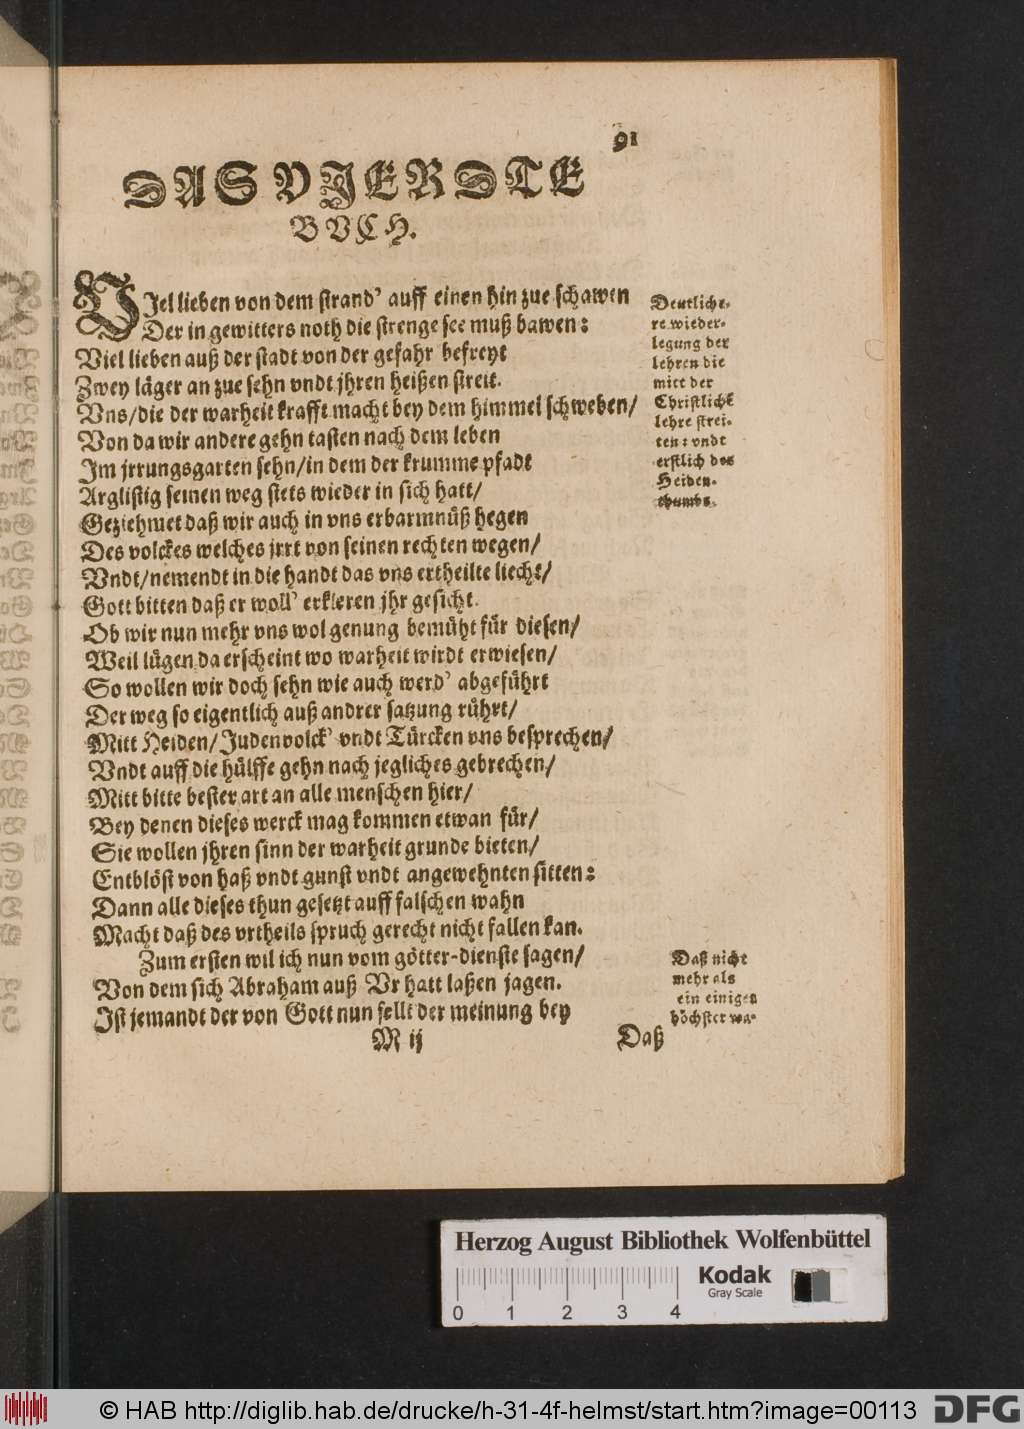 91
DAS VJERDTE
BVCH.
VJel lieben von dem strand' auff einen hin zue schawen
Der in gewitters noth die strenge see muß bawen:
Viel lieben auß der stadt von der gefahr befreyt
Zwey läger an zue sehn vndt jhren heißen streit.
Vns/die der warheit krafft macht bey dem himmel schweben/
Von da wir andere gehn tasten nach dem leben
Im jrrungsgarten sehn/in dem der krumme pfadt
Arglistig seinen weg stets wieder in sich hatt/
Geziehmet daß wir auch in vns erbarmnüß hegen
Des volckes welches jrrt von seinen rechten wegen/
Vndt/nemendt in die handt das vns ertheilte liecht/
Gott bitten daß er woll' erkleren jhr gesicht.
Ob wir nun mehr vns wol genung bemüht für diesen/
Weil lügen da erscheint wo warheit wirdt erwiesen/
So wollen wir doch sehn wie auch werd' abgeführt
Der weg so eigentlich auß andrer satzung rührt/
Mitt Heiden/Judenvolck' vndt Türcken vns besprechen/
Vndt auff die hülffe gehn nach jegliches gebrechen/
Mitt bitte bester art an alle menschen hier/
Bey denen dieses werck mag kommen etwan für/
Sie wollen jhren sinn der warheit grunde bieten/
Entblöst von haß vndt gunst vndt angewehnten sitten:
Dann alle dieses thun gesetzt auff falschen wahn
Macht daß des vrtheils spruch gerecht nicht fallen kan.
Zum ersten wil ich nun vom götter-dienste sagen/
Von dem sich Abraham auß Vr hatt laßen jagen.
Ist jemandt der von Gott nun fellt der meinung bey
M ij
Daß
Deutliche-
re wieder-
legung der
lehren die
mitt der
Christliche
lehre strei-
ten: vndt
erstlich des
Heiden-
thumbs.
Daß nicht
mehr als
ein einiger
höchster wa-
Herzog August Bibliothek Wolfenbüttel
Kodak
Gray Scale
0 1 2 3 4
© HAB http://diglib.hab.de/drucke/h-31-4f-helmst/start.htm?image=00113
DFG